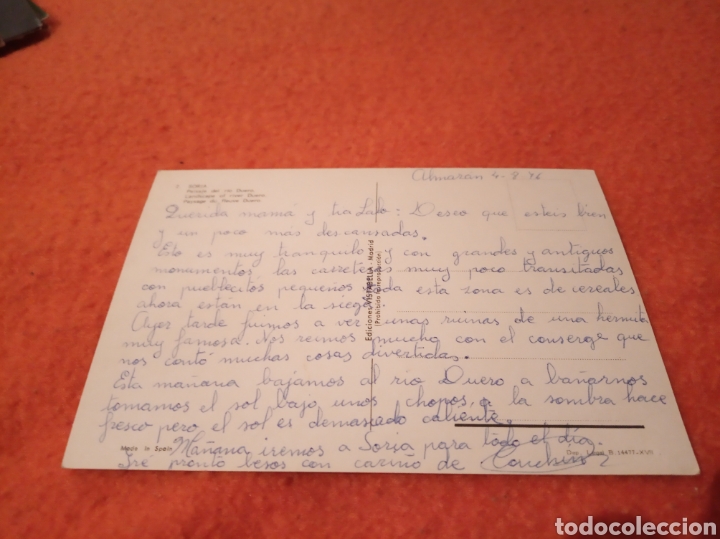 Almarán 4-8-76
3 SORIA
Paisaje del río Duero.
Landscape of river Duero.
Paysage du fleuve Duero.
Querida mamá y tia Lalo: Deseo que esteis bien
y un poco mas descansadas.
Esto es muy tranquilo y con grandes y antiguos
monumentos, las carreteras muy poco transitadas
con pueblecitos pequeños toda esta zona es de cereales
ahora están en la siega.
Ayer tarde fuimos a ver unas ruinas de una hermita
muy famosa. Nos reimos mucho con el conserge que
nos contó muchas cosas divertidas.
Esta mañana bajamos al río Duero a bañarnos
tomamos el sol bajo unos chopos, a la sombra hace
fresco pero el sol es demasiado caliente.
Mañana iremos a Soria para todo el día.
Iré pronto besos con cariño de Conchin
Ediciones VISTABELLA - Madrid
(Prohibida la reproducción)
Made in Spain
Dep. Legal B. 14477-XVII
todocoleccion.net